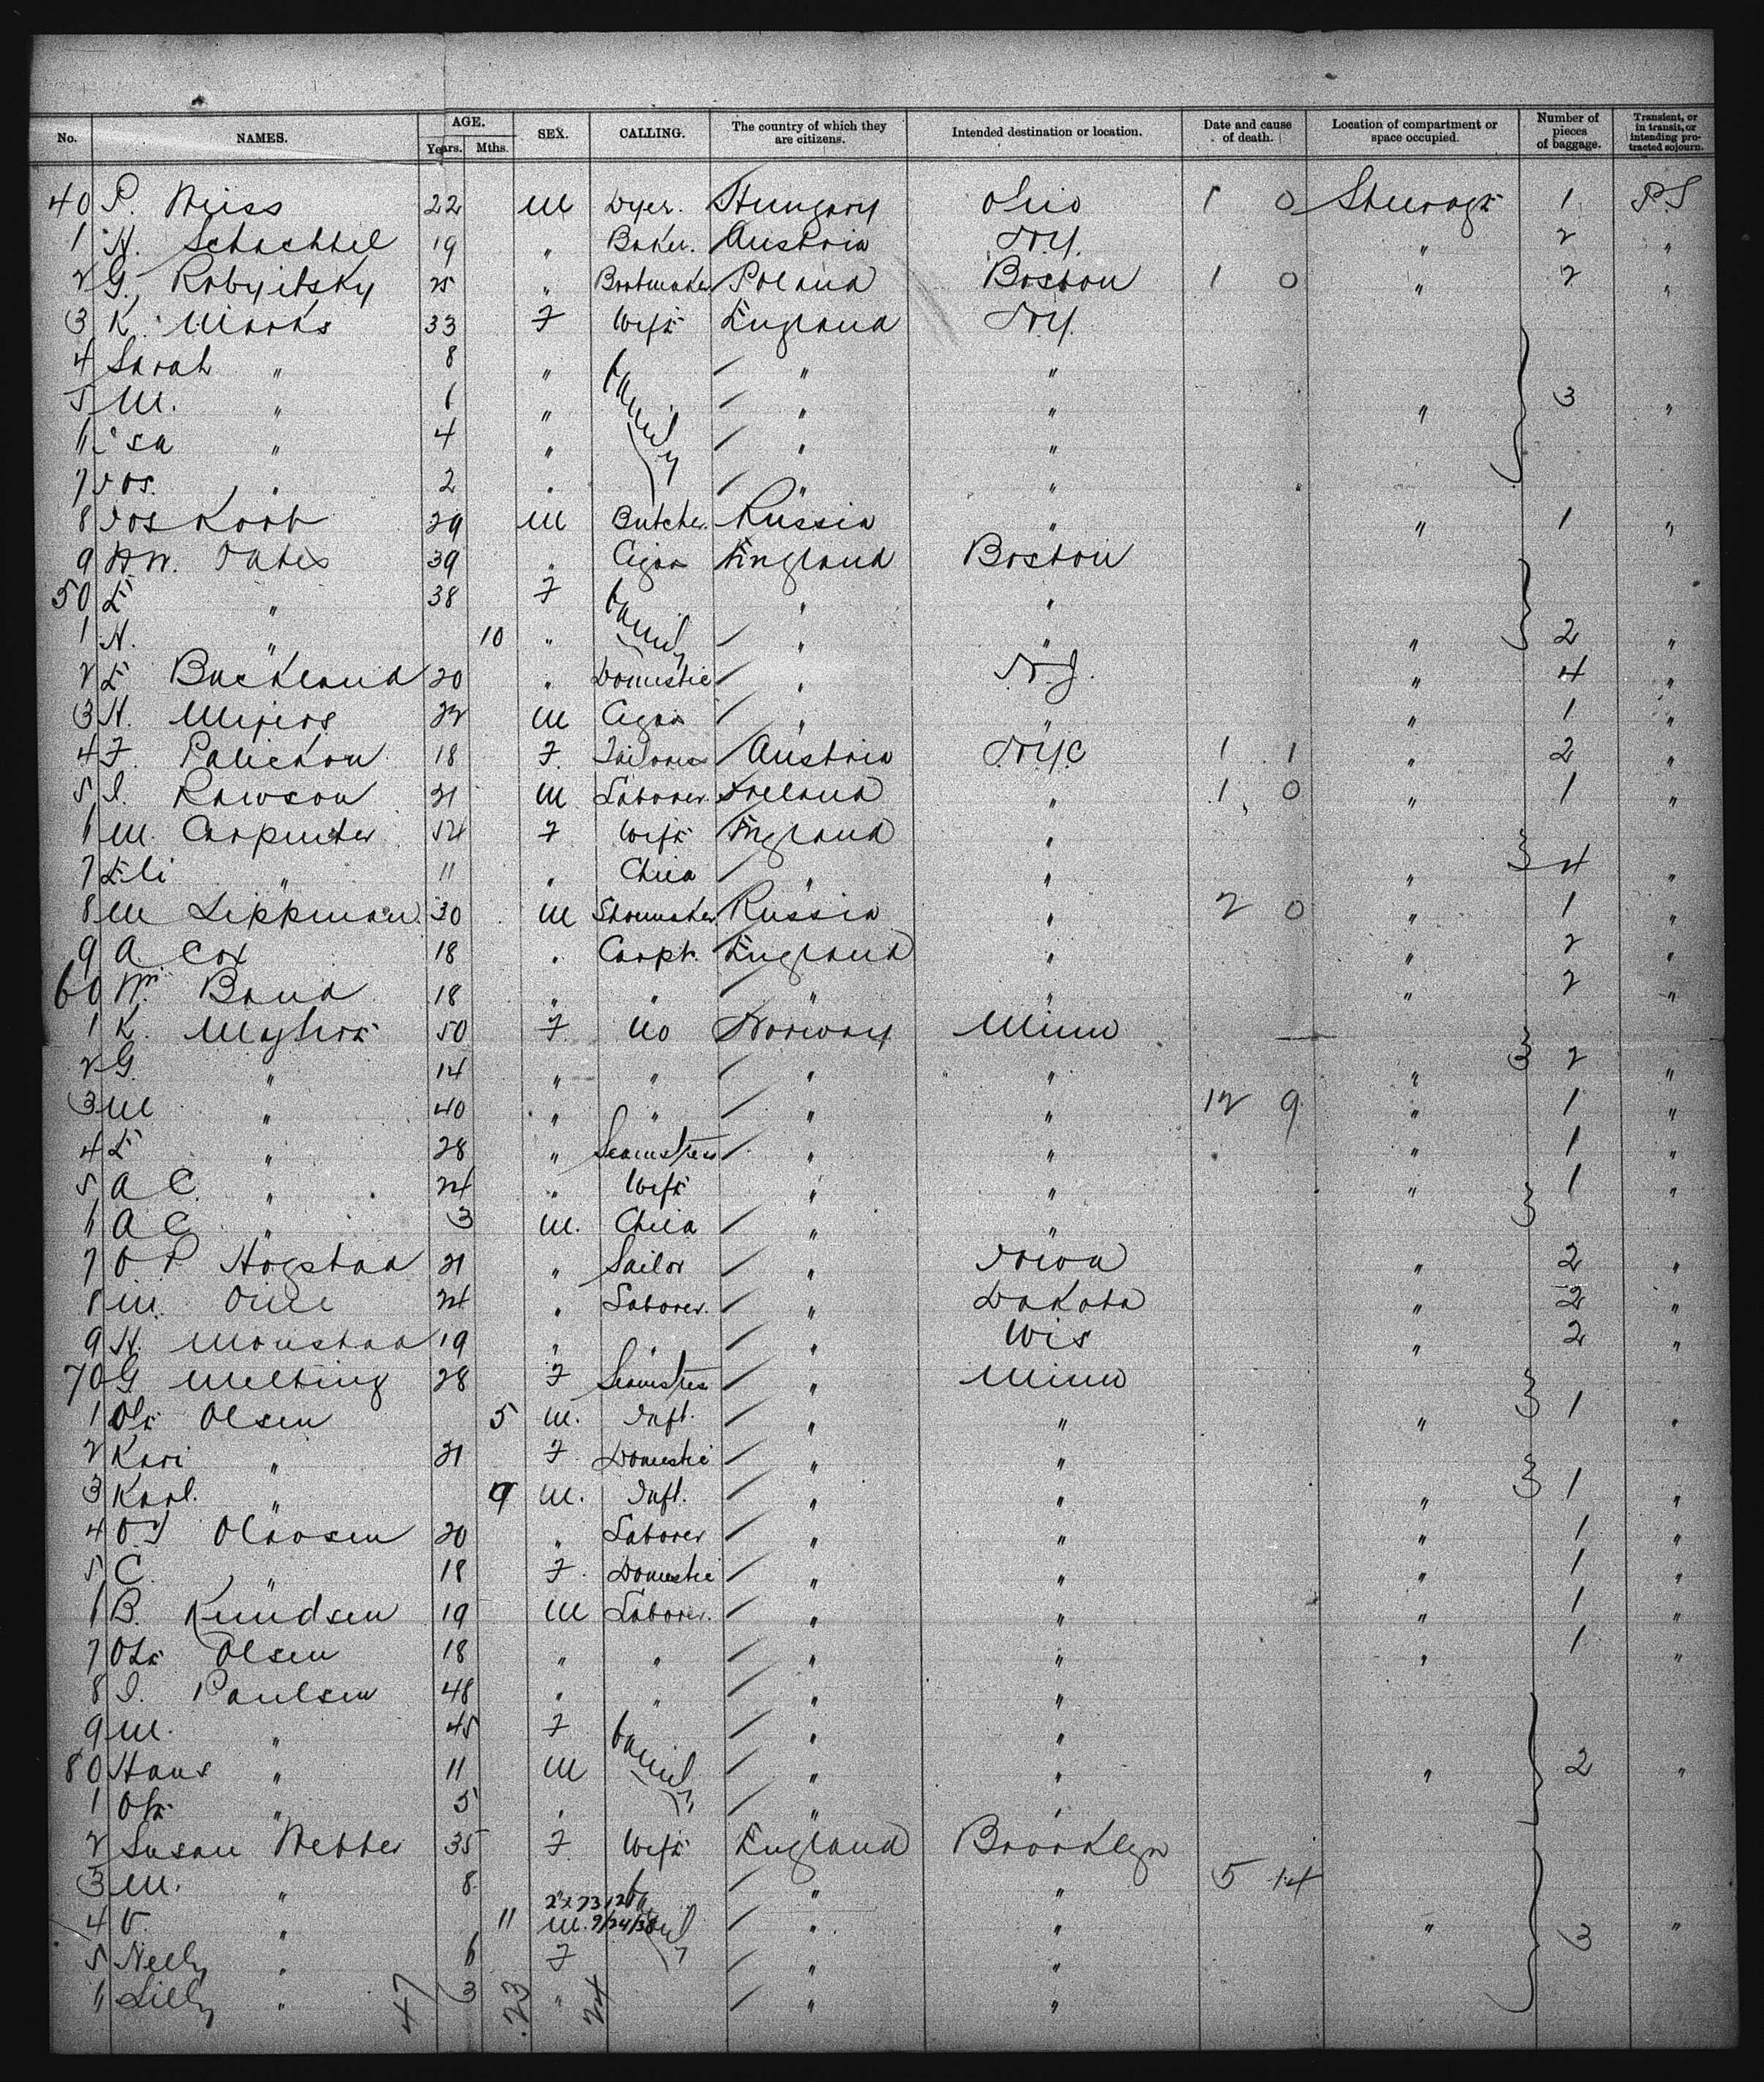 No. NAMES. AGE. Years. Mths. SEX. CALLING. The country of which they are citizens. Intended destination or location. Date and cause of death. Location of compartment or space occupied. Number of pieces of baggage. Transient, or in transit, or intending protracted sojourn.
40 P. Weiss 22 M Dyer. Hungary Ohio 1 0 Steerage 1 P.S
1 H. Schachtel 19 " Baker. Austria N.Y. " 2 "
2 G. Rabyitsky 25 " Bootmaker Poland Boston 1 0 " 2 "
3 K. Marks 33 F Wife England N.Y.
4 Sarah " 8 " family " "
5 M. " 1 " " " " 3 "
6 Isa " 4 " " "
7 Jos. " 2 " " "
8 Jos Korb 29 M Butcher Russia " " 1 "
9 Oates 39 " Cigar England Boston
50 E " 38 F family " "
1 N. " 10 " " " " 2 "
2 E Buckland 20 " Domestic " N.J. " 4 "
3 H. 22 M Cigar " " " 1 "
4 F. 18 F. Tailoress Austria N.Y.C 1 1 " 2 "
5 I. Rawson 21 M Laborer. Ireland " 1 0 " 1 "
6 M. Carpenter 54 F Wife England "
7 Eli " 11 " Child " " " 4 "
8 M Lippman 30 M Shoemaker Russia " 2 0 " 1 "
9 A Cox 18 " Carpt. England " " 2 "
60 Wm. Band 18 " " " " " 2 "
1 K. 50 F No Norway Minn
2 G. " 14 " " " " " 2 "
3 M " 40 " " " " 12 9 " 1 "
4 E " 28 " Seamstress " " " 1 "
5 A C. " 24 " Wife " " " 1 "
6 A C " 3 M. Child " "
7 O P Hogstad 21 " Sailor " Iowa " 2 "
8 M. 24 " Laborer. " Dakota " 2 "
9 H. Monstad 19 " " " Wis " 2 "
70 G Melting 28 F Seamstress " Minn
1 Ole Olsen 5 M. Inft. " " " 1 "
2 Kari " 21 F Domestic " "
3 Karl. " 9 M. Inft. " " " 1 "
4 O. Olavsen 20 " Laborer " " " 1 "
5 C. " 18 F. Domestic " " " 1 "
6 B. Knudsen 19 M Laborer. " " " 1 "
7 Ole Olsen 18 " " " " " 1 "
8 I. Paulsen 48 " " " "
9 M. " 45 F family " "
80 Hans " 11 M " " " 2 "
1 Ole " 5 " " "
2 Susan Webber 35 F. Wife England Brooklyn
3 M. " 8 family " " 5 14
4 V. " 11 M. 9/24/38 " " " 3 "
5 Nelly " 6 F " "
6 Lilly " 3 " " "
47 23 24